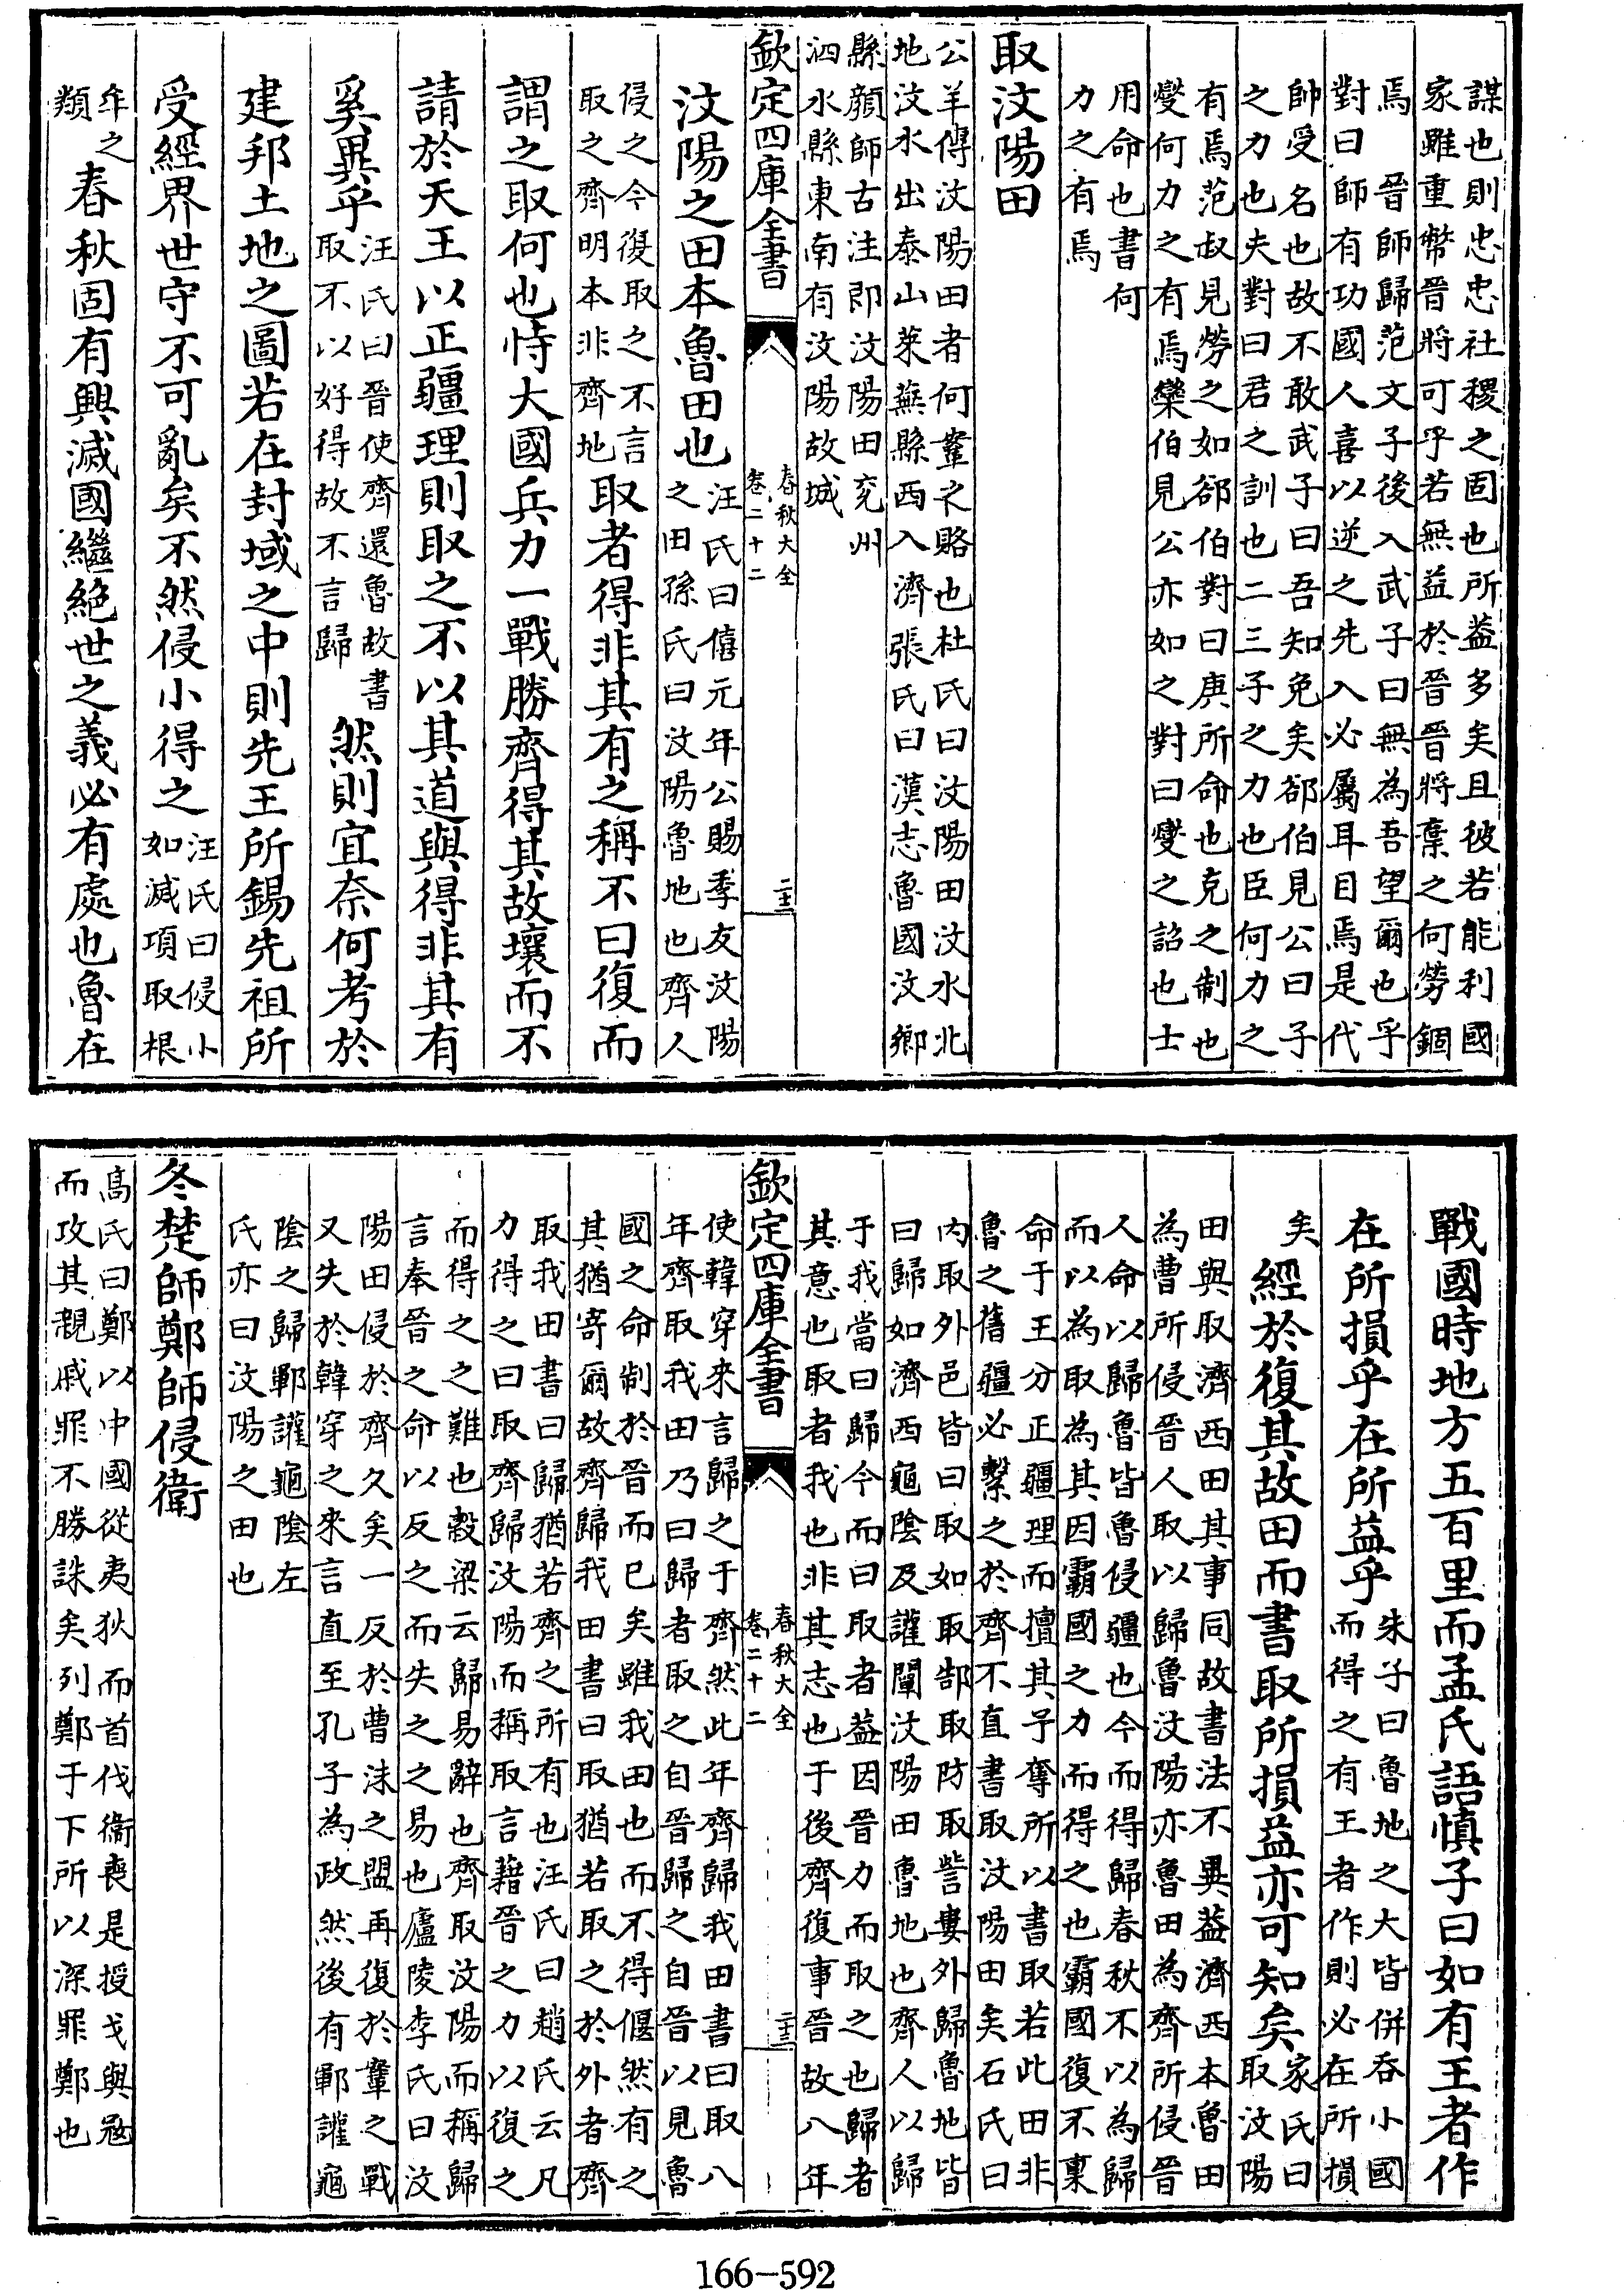 謀也則忠忠社稷之固也所益多矣且彼若能利國
家雖重幣晉將可乎若無益於晉晉將棄之何勞錮
焉　晉師歸范文子後入武子曰無為吾望爾也乎
對曰師有功國人喜以逆之先入必屬耳目焉是代
帥受名也故不敢武子曰吾知免矣郤伯見公曰子
之力也夫對曰君之訓也二三子之力也臣何力之
有焉范叔見勞之如郤伯對曰庚所命也克之制也
燮何力之有焉欒伯見公亦如之對曰燮之詔也士
用命也書何
力之有焉
取汶陽田
公羊傳汶陽田者何鞌之賂也杜氏曰汶陽田汶水北
地汶水出泰山萊蕪縣西入濟張氏曰漢志魯國汶鄉
縣顔師古注即汶陽田兖州
泗水縣東南有汶陽故城
欽定四庫全書
春秋大全
卷二十二
二十三
汶陽之田本魯田也
汪氏曰僖元年公賜季友汶陽
之田孫氏曰汶陽魯地也齊人
侵之今復取之不言
取之齊明本非齊地
取者得非其有之稱不曰復而
謂之取何也恃大國兵力一戰勝齊得其故壤而不
請於天王以正疆理則取之不以其道與得非其有
奚異乎
汪氏曰晉使齊還魯故書
取不以好得故不言歸
然則宜奈何考於
建邦土地之圖若在封域之中則先王所錫先祖所
受經界世守不可亂矣不然侵小得之
汪氏曰侵小
如滅項取根
牟之
類
春秋固有興滅國繼絶世之義必有處也魯在
戰國時地方五百里而孟氏語慎子曰如有王者作
在所損乎在所益乎
朱子曰魯地之大皆併吞小國
而得之有王者作則必在所損
矣
經於復其故田而書取所損益亦可知矣
家氏曰
取汶陽
田與取濟西田其事同故書法不異葢濟西本魯田
為曹所侵晉人取以歸魯汶陽亦魯田為齊所侵晉
人命以歸魯皆魯侵疆也今而得歸春秋不以為歸
而以為取為其因霸國之力而得之也霸國復不稟
命于王分正疆理而擅其予奪所以書取若此田非
魯之舊疆必繫之於齊不直書取汶陽田矣石氏曰
内取外邑皆曰取如取郜取防取訾婁外歸魯地皆
曰歸如濟西龜陰及讙闡汶陽田魯地也齊人以歸
于我當曰歸今而曰取者葢因晉力而取之也歸者
其意也取者我也非其志也于後齊復事晉故八年
欽定四庫全書
春秋大全
卷二十二
二十三
使韓穿來言歸之于齊然此年齊歸我田書曰取八
年齊取我田乃曰歸者取之自晉歸之自晉以見魯
國之命制於晉而已矣雖我田也而不得偃然有之
其猶寄爾故齊歸我田書曰取猶若取之於外者齊
取我田書曰歸猶若齊之所有也汪氏曰趙氏云凡
力得之曰取齊歸汶陽而稱取言藉晉之力以復之
而得之之難也榖梁云歸易辭也齊取汶陽而稱歸
言奉晉之命以反之而失之之易也廬陵李氏曰汶
陽田侵於齊久矣一反於曹沬之盟再復於鞌之戰
又失於韓穿之來言直至孔子為政然後有鄆讙龜
陰之歸鄆讙龜陰左
氏亦曰汶陽之田也
冬楚師鄭師侵衛
髙氏曰鄭以中國從夷狄而首伐衞喪是授戈與冦
而攻其親戚罪不勝誅矣列鄭于下所以深罪鄭也
166-592